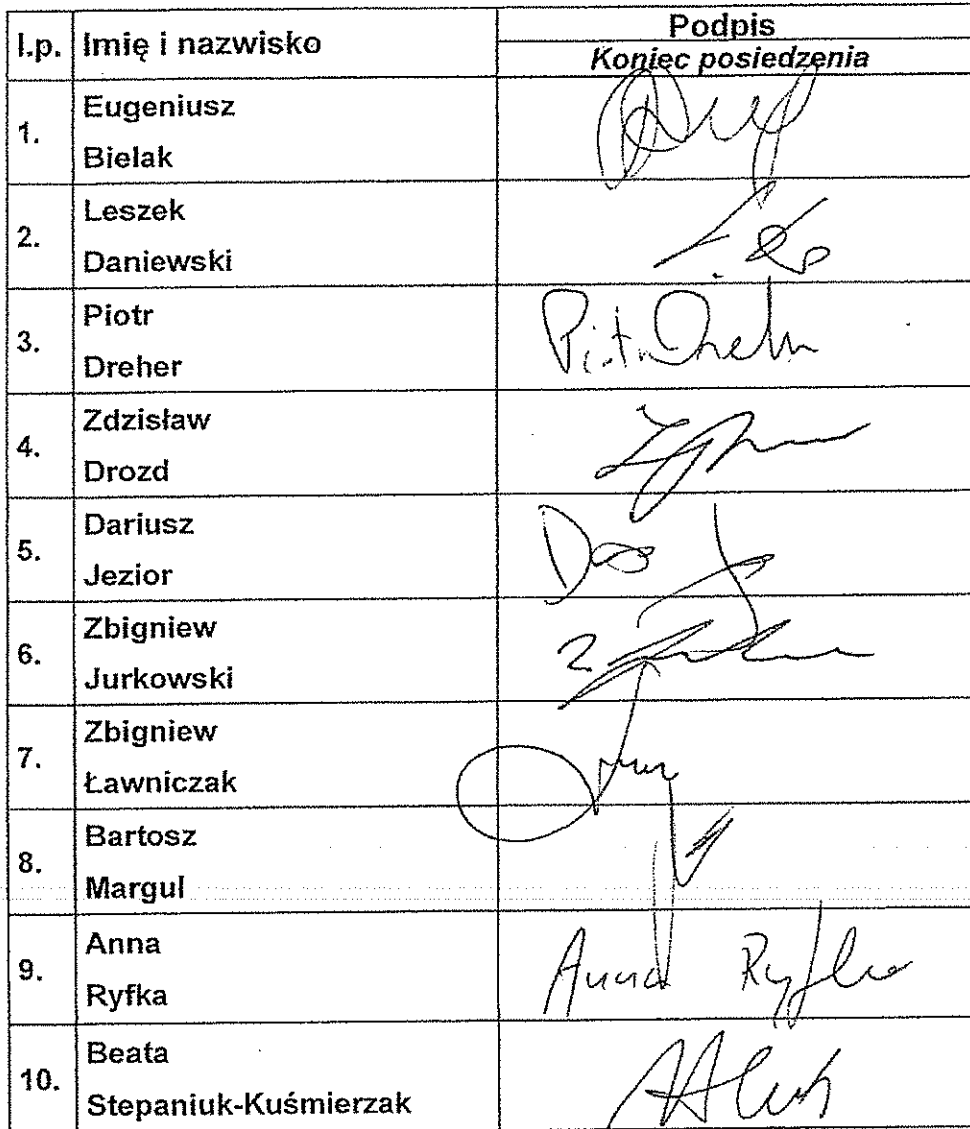 l.p. Imię i nazwisko Podpis
Koniec posiedzenia
1. Eugeniusz
Bielak
2. Leszek
Daniewski
3. Piotr
Dreher
Piotr Dreher
4. Zdzisław
Drozd
5. Dariusz
Jezior
6. Zbigniew
Jurkowski
7. Zbigniew
Ławniczak
8. Bartosz
Margul
9. Anna
Ryfka
Anna Ryfka
10. Beata
Stepaniuk-Kuśmierzak